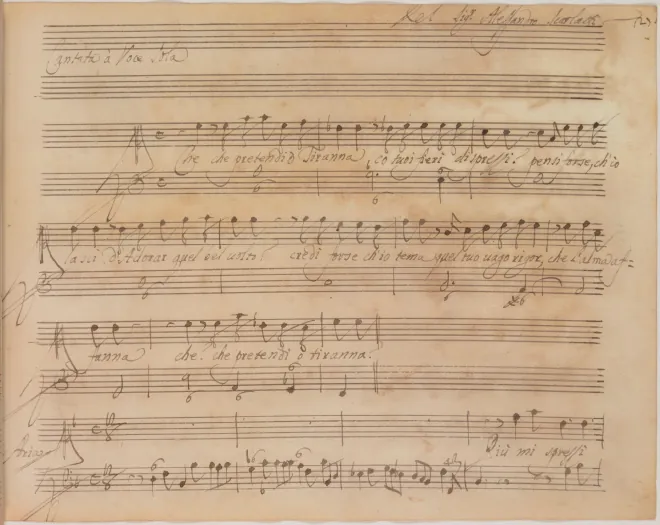 Del Sig.r Alessandro Scarlatti
Cantata à Voce Sola
Che che pretendi ò Tiranna, co tuoi fieri dispressi? pensi forse, ch'io
lasci d'Adorar quel bel volto? credi forse ch'io tema quel tuo vago rigor, che l'alma af=
fanna che. che pretendi ò tiranna.
Aria
Più mi spressi